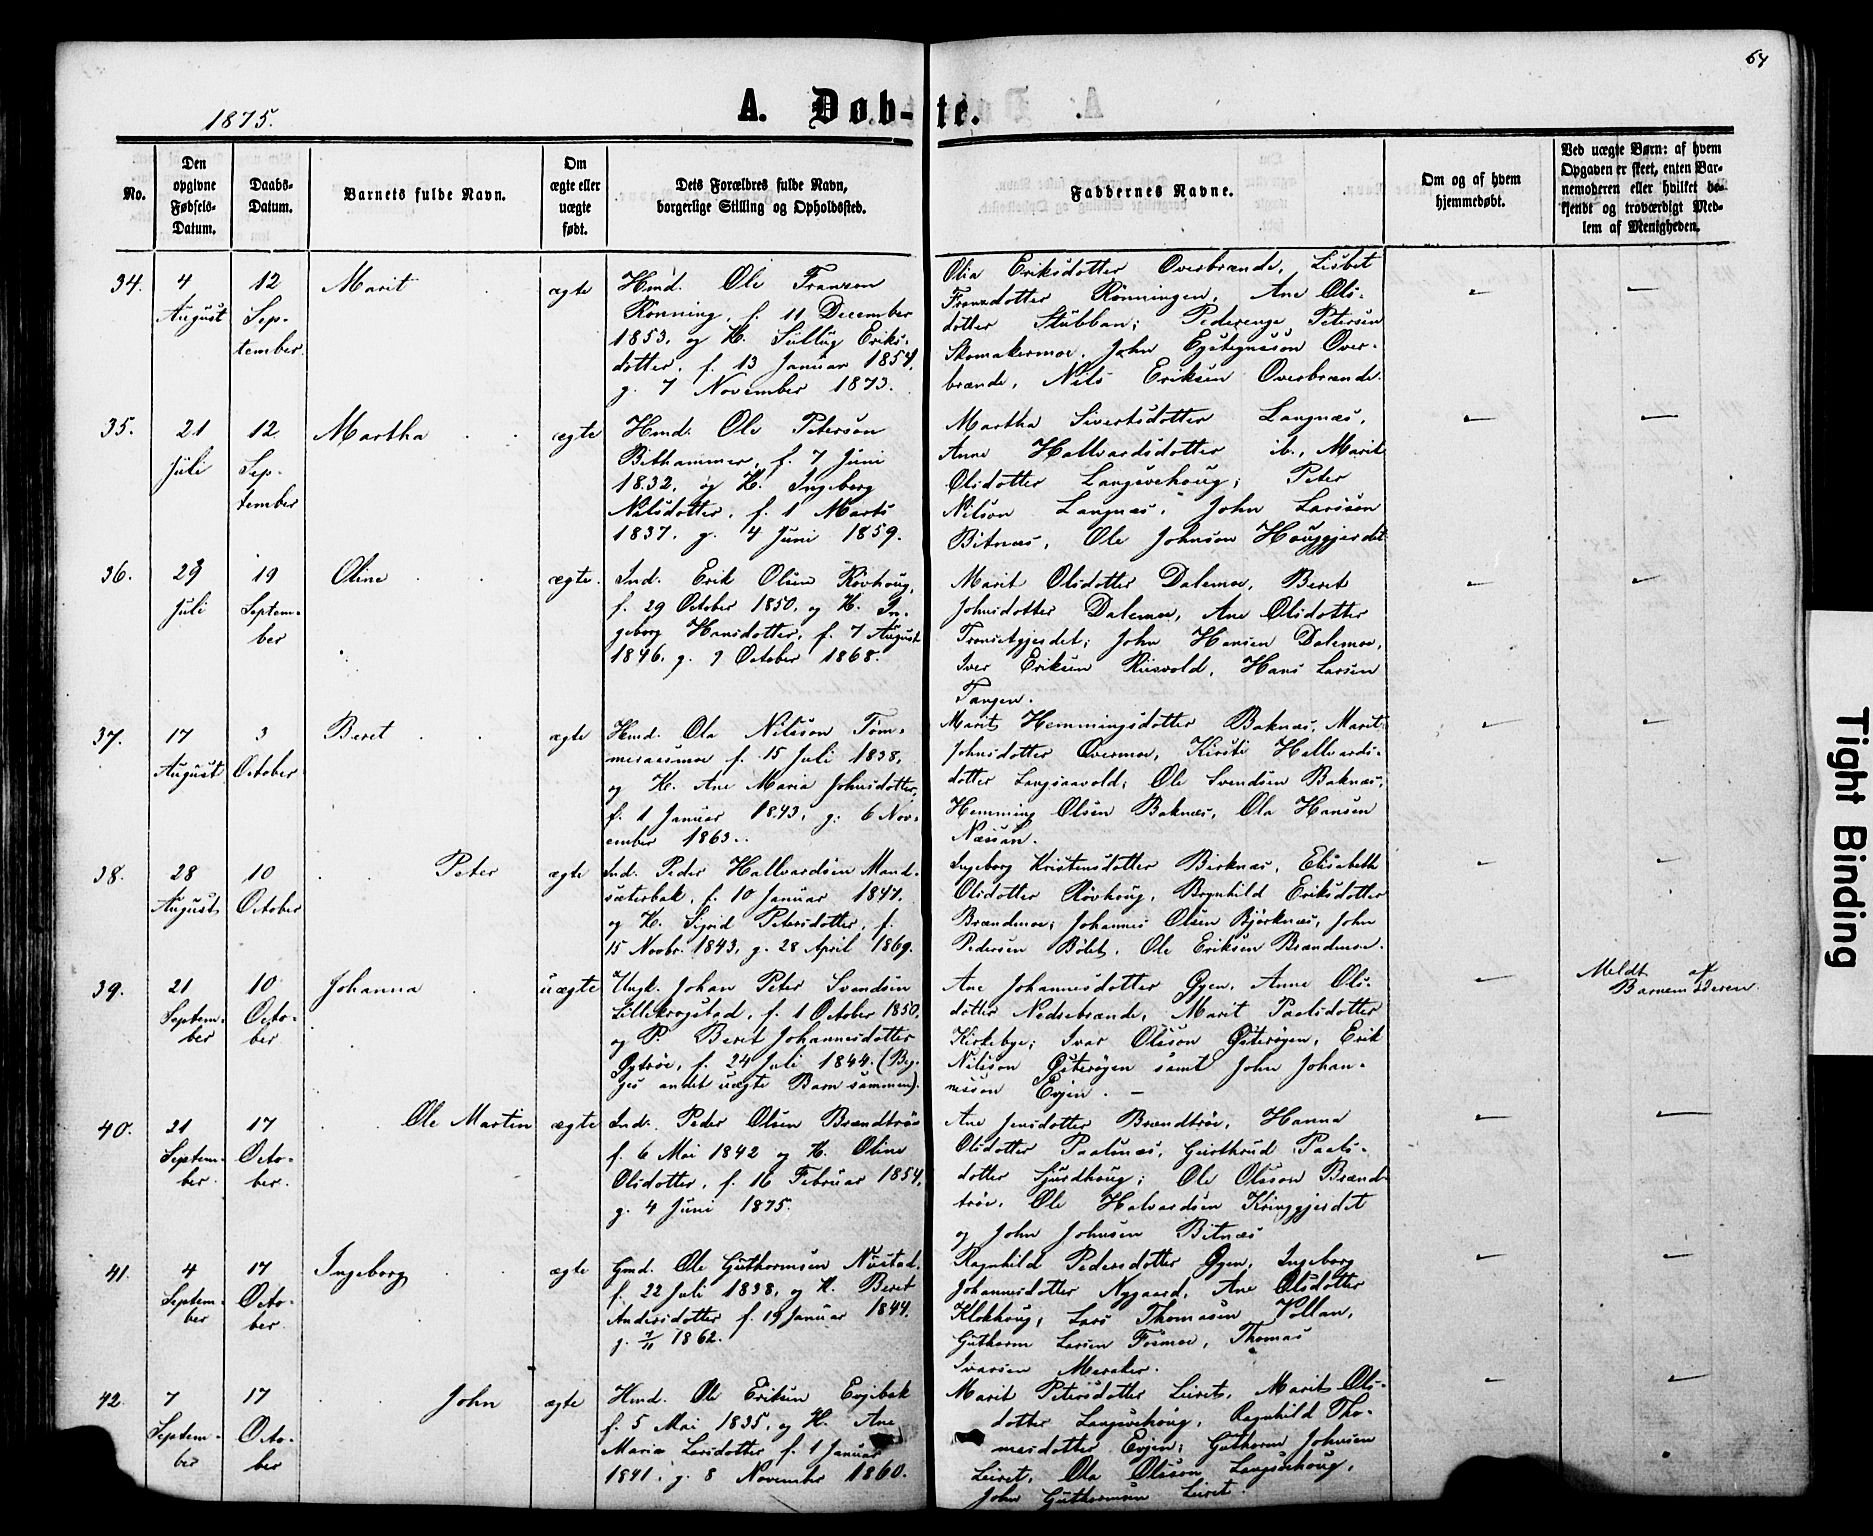 64
1875.
A. Døb-te.
No.
Den
opgivne
Fødsels-
Datum.
Daabs-
Datum.
Barnets fulde Navn.
Om
ægte eller
uægte
født.
Dets Forældres fulde Navn,
borgerlige Stilling og Opholdssted.
Faddernes Navne.
Om og af hvem
hjemmedøbt.
Ved uægte Børn: af hvem
Opgaven er skeet, enten Bar-
nemoderen eller hvilket be-
kjendt og troværdigt Med-
lem af Menigheden.
34.
4
August
12
Sep-
tember
Marit
ægte
Hmd. Ole Franzen
Rønning, f. 11 December
1853, og H. Eriks-
dotter, f. 13 Januar 1854,
g. 7 November 1873.
Olia Eriksdotter Overbrænde, Lisbet
Franzdotter Rønningen, Ane Ols-
dotter Stubban; Petersen
Skomakermoe, John Over-
brænde, Nils Eriksen Overbrænde.
35.
21
Juli
12
Sep-
tember
Martha
ægte
Hmd. Ole Peterson
Bithammer, f. 7 Juni
1832, og H. Ingeborg
Nilsdotter, f. 1 Marts
1837, g. 4 Juni 1859.
Martha Sivertsdotter Langnæs,
Anne Hallvardsdotter ib., Marit
Olsdotter Langsvehoug; Peter
Nilson Langnæs, John Larssen
Bitnæs, Ole Johnson Houggjerdet
36.
29
Juli
19
Septem-
ber
Oline
ægte.
Ind. Erik Olsen Røvhoug,
f. 29 October 1850, og H. In-
geborg Hansdotter, f. 7 August
1846, g. 9 October 1868.
Marit Olsdotter Dalemoe, Beret
Johnsdotter Dalemoe, Ane Olsdotter
Tronsetgjerdet; John Hansen Dalemoe,
Iver Eriksen Risvold, Hans Larsen
Tangen.
37.
17
August
3
October
Beret
ægte
Hmd. Ola Nilsson Tøm-
meraasmoe f. 15 Juli 1838,
og H. Ane Maria Johnsdotter,
f. 1 Januar 1843, g. 6 Nov-
ember 1863.
Marit Hemmingsdotter Baknæs, Marit
Johnsdotter Øvermoe, Kirsti Hallvards-
dotter Langsaavold; Ole Svendsen Baknæs,
Hemming Olsen Baknæs, Ola Hansen
Næssan.
38.
28
August
10
October
Peter
ægte
Ind. Peder Hallvardsen Mand-
sæterbak, f. 10 Januar 1847,
og H. Sigrid Petersdotter, f.
15 Novbr. 1843, g. 28 April 1869.
Ingeborg Kristensdotter Birknæs, Elisabeth
Olsdotter Røvhoug, Brynhild Eriksdotter
Brændmoe; Johannes Olsen Bjørknæs, John
Pedersen Bølet, Ole Eriksen Brændmoe.
39.
21
Septem-
ber
10
Octo-
ber
Johanna
uægte
Ungk. Johan Peter Svendsen
Lillekrogstad, f. 1 October 1850,
og P. Beret Johannesdotter
f. 24 Juli 1844. (Beg-
ges andet uægte Barn sammen).
Ane Johannesdotter Øyen, Anne Ols-
dotter Nedsebrænde, Marit Paalsdotter
Kirkebye; Ivar Olsson Østerøyen, Erik
Nilsson Østerøyen samt John Johan-
nesson Evjen. —
Meldt af
Barnemoderen.
40.
21
Septem-
ber
17
Octo-
ber.
Ole Martin
ægte
Ind. Peder Olsen Brændtrøe
f. 6 Mai 1842 og H. Oline
Olsdotter, f. 16 Februar 1854,
g. 4 Juni 1875.
Ane Jensdotter Brændtrøe, Hanna
Olsdotter Paalsnæs, Gurthrud Paals-
dotter Sjurdhoug; Ole Olsson Brænd-
trøe, Ole Halvardsen Kringgjerdet
og John Johnsen Bitnæs
41.
4
Septem-
ber
17
Octo-
ber
Ingeborg
ægte
Gmd. Ole Guthormsen Nustad,
f. 22 Juli 1838, og H. Beret
Andersdotter f. 19 Januar 1844.
g. 7/11 1862.
Ragnhild Pedersdotter Øyen, Ingeborg
Johannesdotter Nygaard, Ane Olsdotter
Klokhoug, Lars Thomasen Vollan,
Guthorm Larsen Fosmoe, Thomas
Ivarsen Meraker.
42.
7
Septem-
ber
17
Octo-
ber
John
ægte
Hmd. Ole Eriksen Evjebak
f. 5 Mai 1835, og H. Ane
Maria Larsdotter f. 1 Januar
1841, g. 8 November 1860.
Marit Petersdotter Leiret, Marit Ols-
dotter Langsvehoug, Ragnhild Tho-
masdotter Evjen; Guthorm Johnsen
Leiret, Ola Olsson Langsvehoug,
John Guthormsen Leiret.
Tight Binding